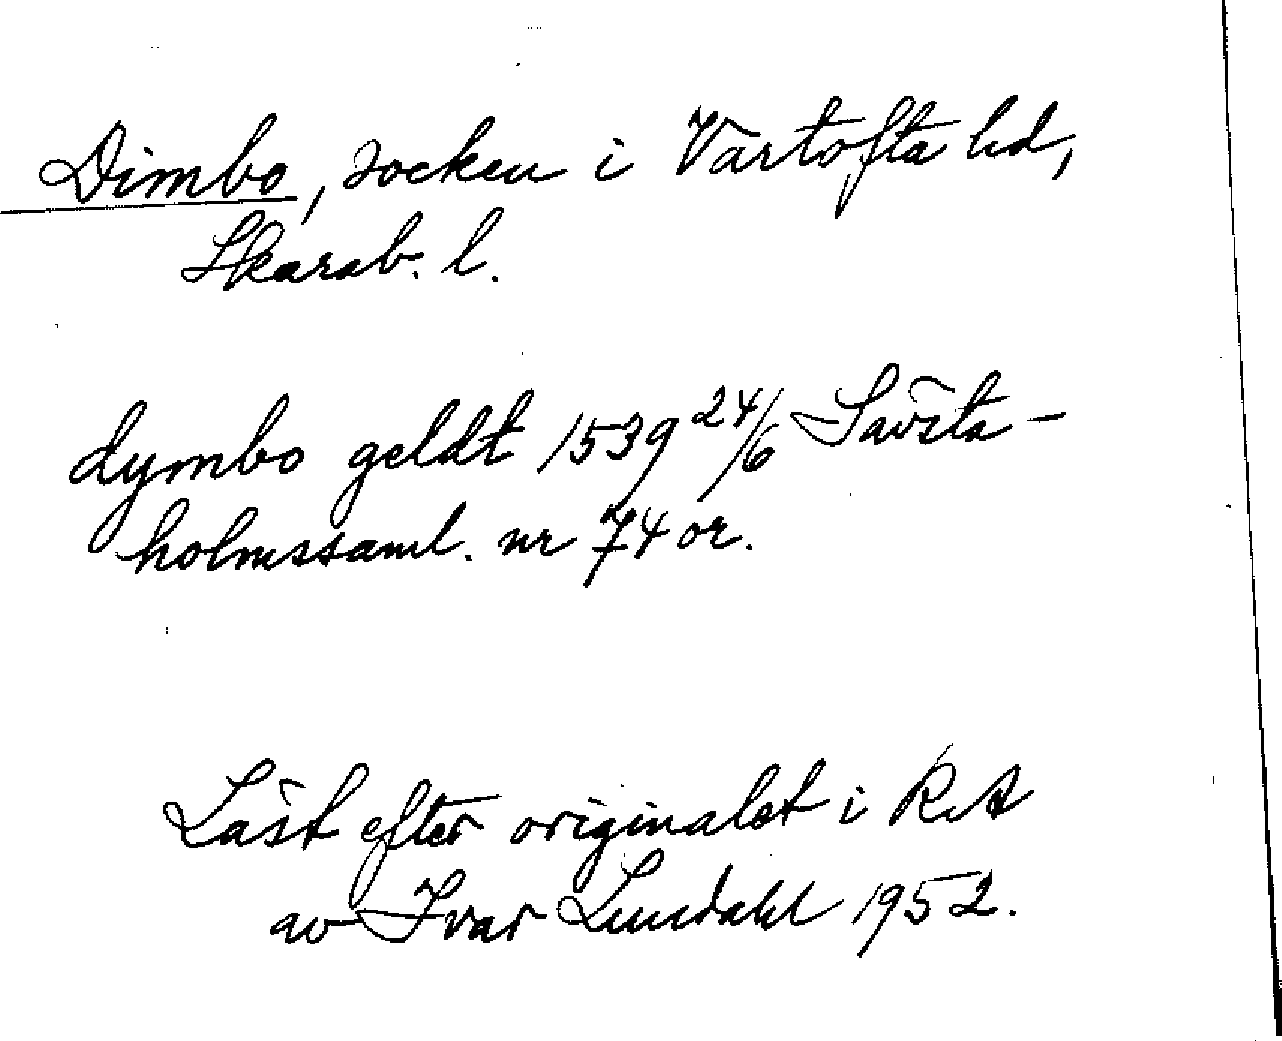 Dimbo, socken i Vartofta hd,
Skarab. l.
dymbo geldt 1539 24/6 Sävsta-
holmssaml. nr 74 or.
Läst efter originalet i RA
av Ivar Lundahl 1952.